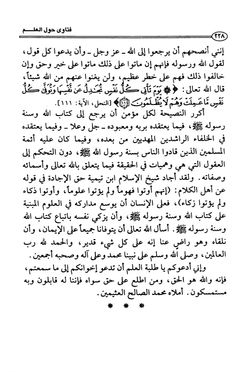 ٢٢٨
فتاوى حول العلم
إنني أنصحهم أن يرجعوا إلى الله ـ عز وجل ـ وأن يدعوا كل قول،
لقول الله ورسوله فإنهم إن ماتوا على ذلك ماتوا على خير وحق وإن
خالفوا ذلك فهم على خطر عظيم، ولن يغنوا عنهم من الله شيئًا،
قال الله تعالى: ﴿ يَوْمَ تَأْتِي كُلُّ نَفْسٍ تُجَادِلُ عَن نَّفْسِهَا وَتُوَفَّى كُلُّ
نَفْسٍ مَّا عَمِلَتْ وَهُمْ لَا يُظْلَمُونَ ﴾ [النحل، الآية: ١١١].
أكرر النصيحة لكل مؤمن أن يرجع إلى كتاب الله وسنة
رسوله ﷺ، فيما يعتقده بربه ومعبوده ـ جل وعلا ـ وفيما يعتقده
في الخلفاء الراشدين المهديين من بعده، وفيما كان عليه أئمة
المسلمين الذين قادوا الناس بسنة رسول الله ﷺ، دون التحكم إلى
العقول التي هي وهميات في الحقيقة فيما يتعلق بالله تعالى وأسمائه
وصفاته. ولقد أجاد شيخ الإسلام ابن تيمية حق الإجادة في قوله
عن أهل الكلام: (إنهم أوتوا فهوماً ولم يؤتوا علوماً، وأوتوا ذكاء
ولم يؤتوا زكاء)، فعلى الإنسان أن يوسع مداركه في العلوم المبنية
على كتاب الله وسنة رسوله ﷺ، وأن يزكي نفسه باتباع كتاب الله
وسنة رسوله ﷺ. أسأل الله تعالى أن يتوفانا جميعاً على الإيمان، وأن
نلقاه وهو راضي عنا إنه على كل شيء قدير، والحمد لله رب
العالمين، وصلى الله وسلم على نبينا محمد وعلى آله وصحبه أجمعين.
وإني أدعوكم يا طلبة العلم أن تدعو إخوانكم إلى ما سمعتم،
فإنه والله هو الحق، ومن اطلع على حق سواه فإننا له وبه
مستمسكون. أملاه محمد الصالح العثيمين.
* * *